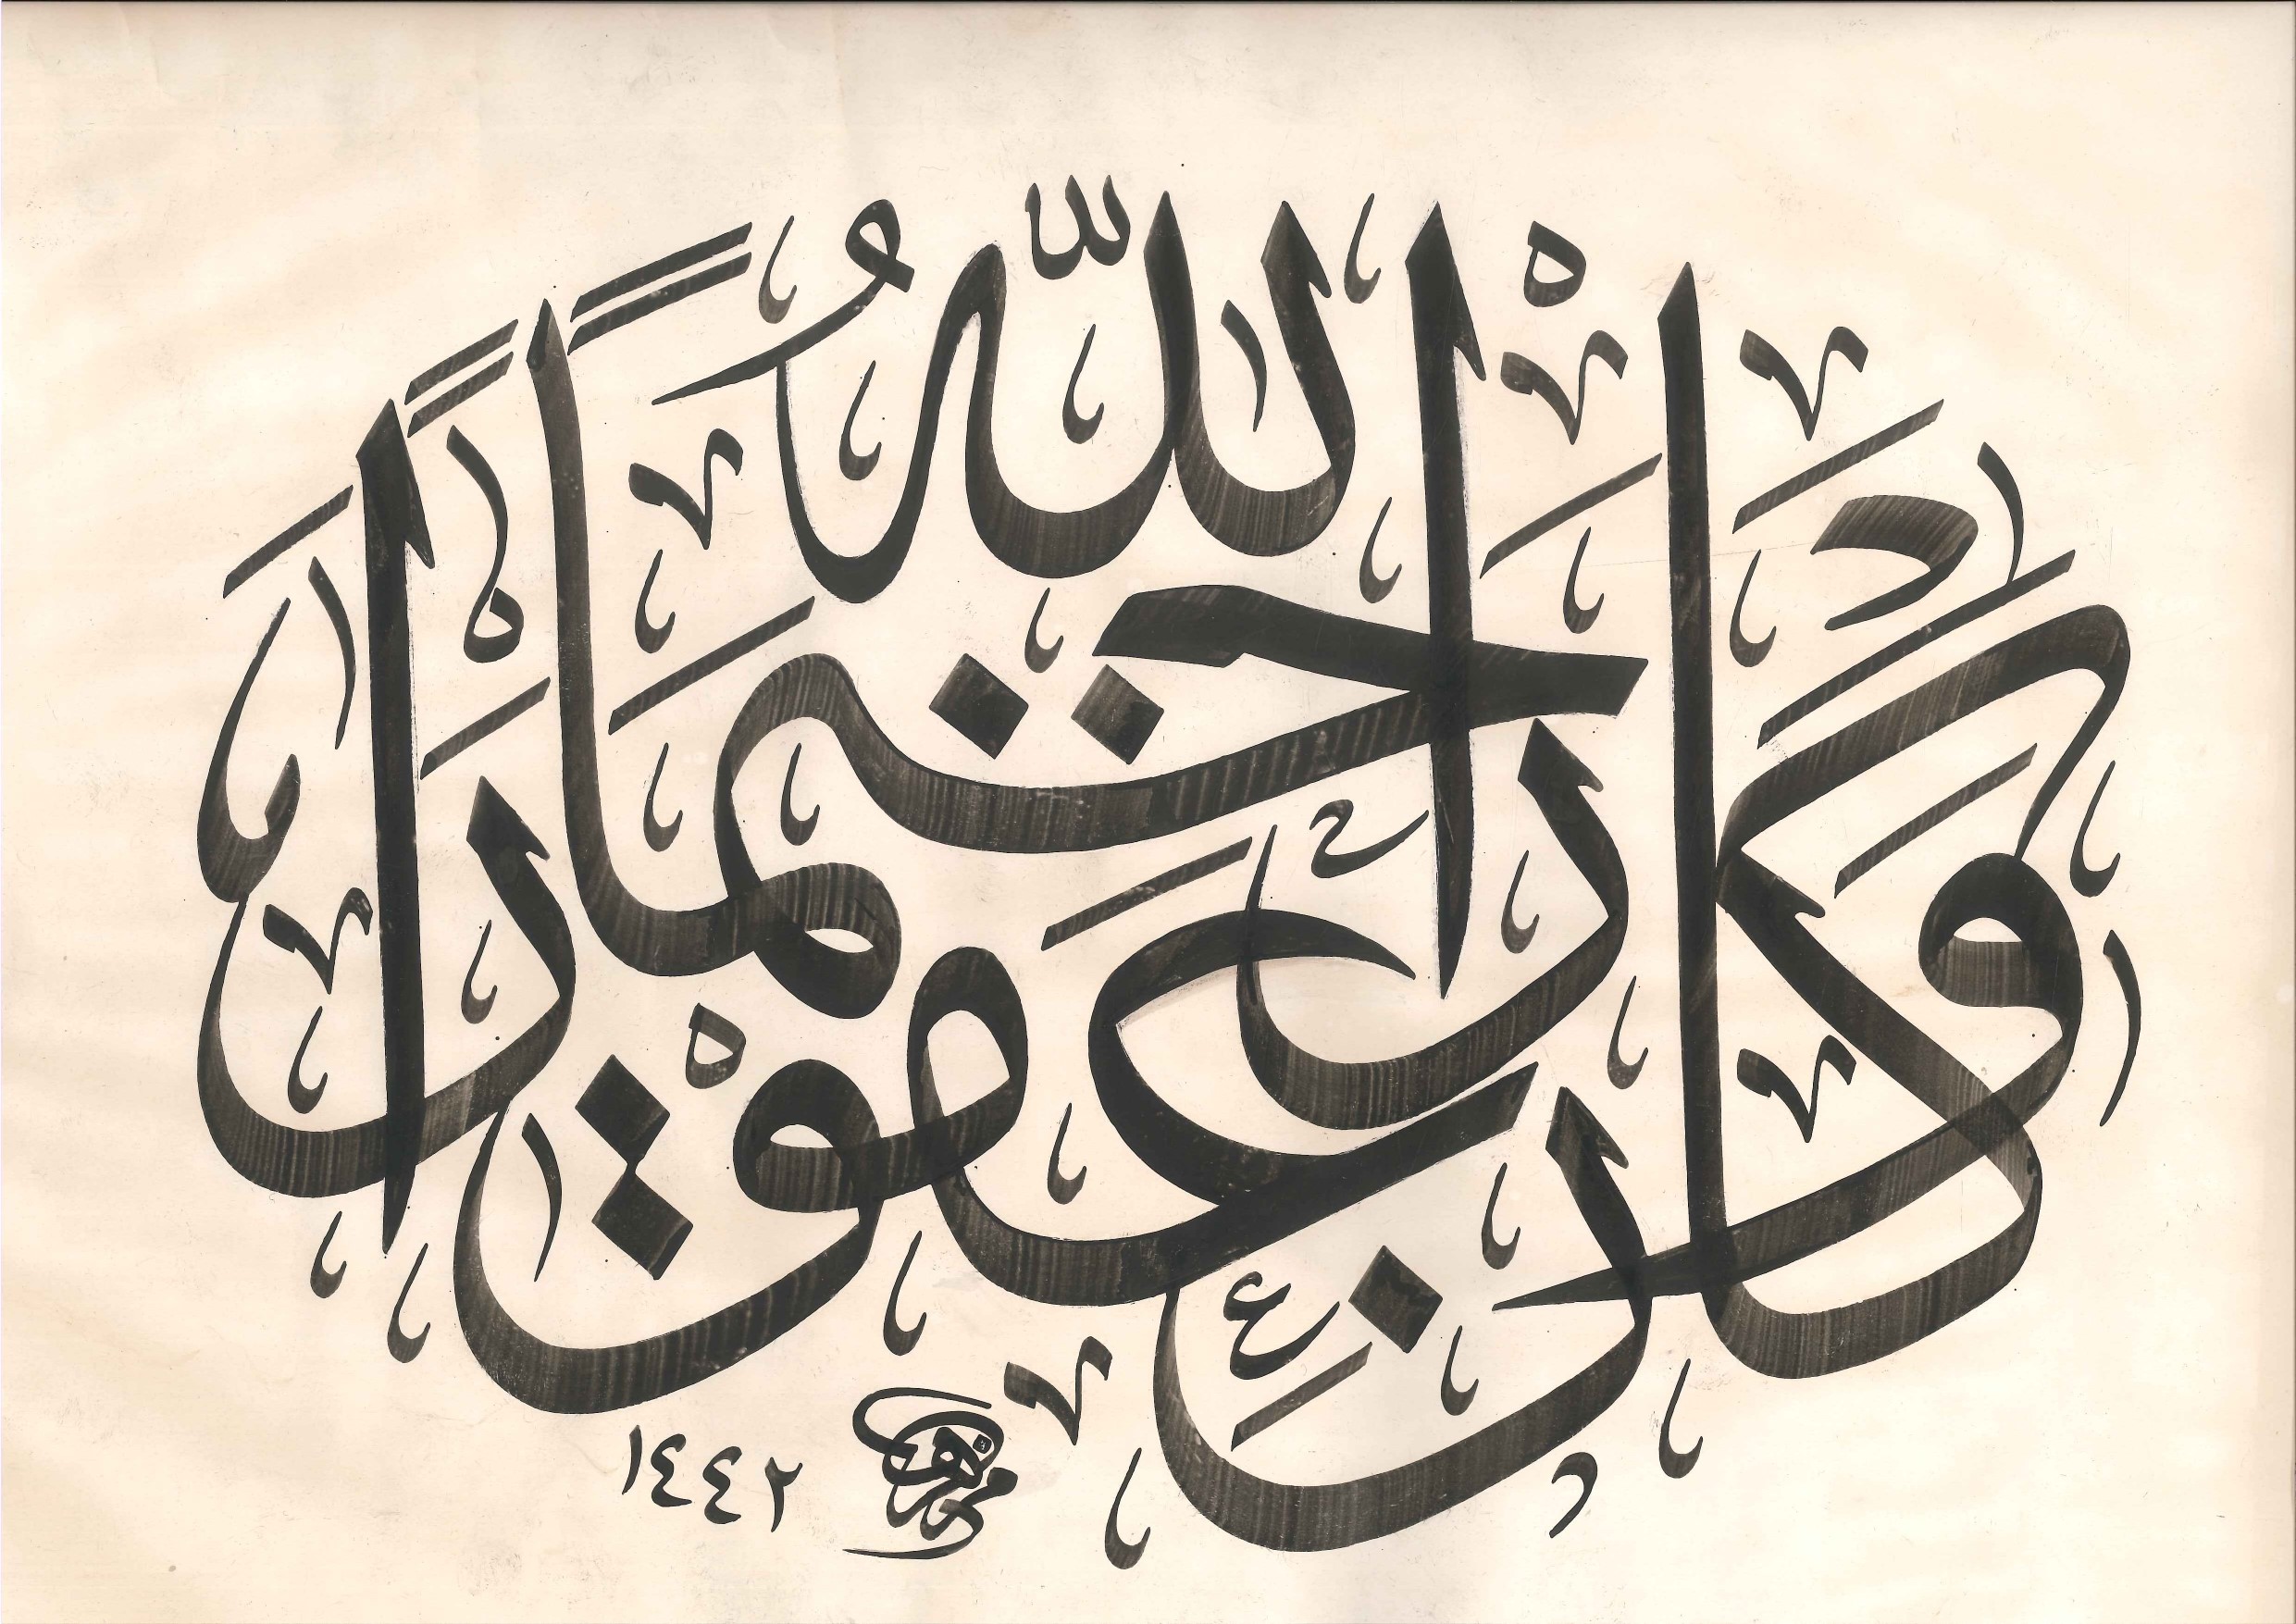 وَكَانَ اللَّهُ غَفُورًا رَحِيمًا
١٤٤٢